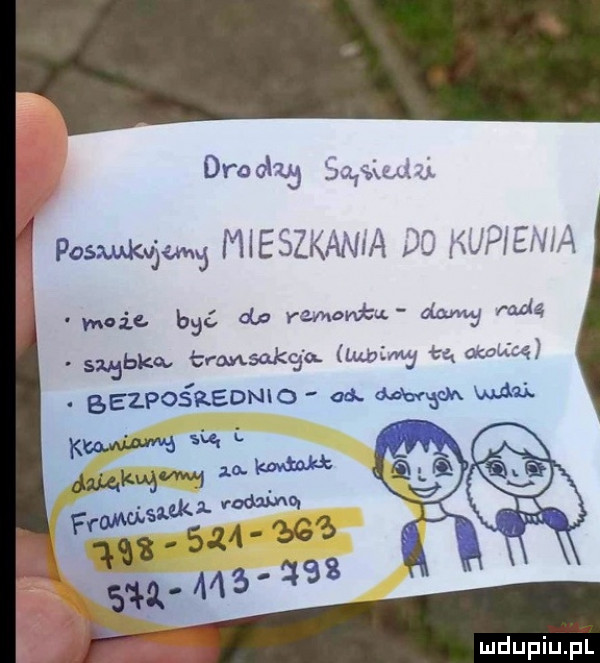 Drodzy Sąsiedzi
Poszukujemy MIESZKANIA DO KUPIENIA
· może być do remontu - damy radę
· szybka transakcja (lubimy tę okolicę)
· BEZPOŚREDNIO - od dobrych ludzi
Kłaniamy się i
dziękujemy za kontakt
Franciszek z rodziną
798-521-363
572-113-798
mdupiu.pl